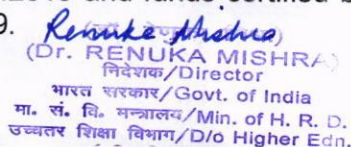 and funds certified b
9. Renuka Mishra
(Dr. RENUKA MISHRA)
निदेशक/Director
भारत सरकार/Govt. of India
मा. सं. वि. मन्त्रालय/Min. of H. R. D.
उच्चतर शिक्षा विभाग/D/o Higher Edn.